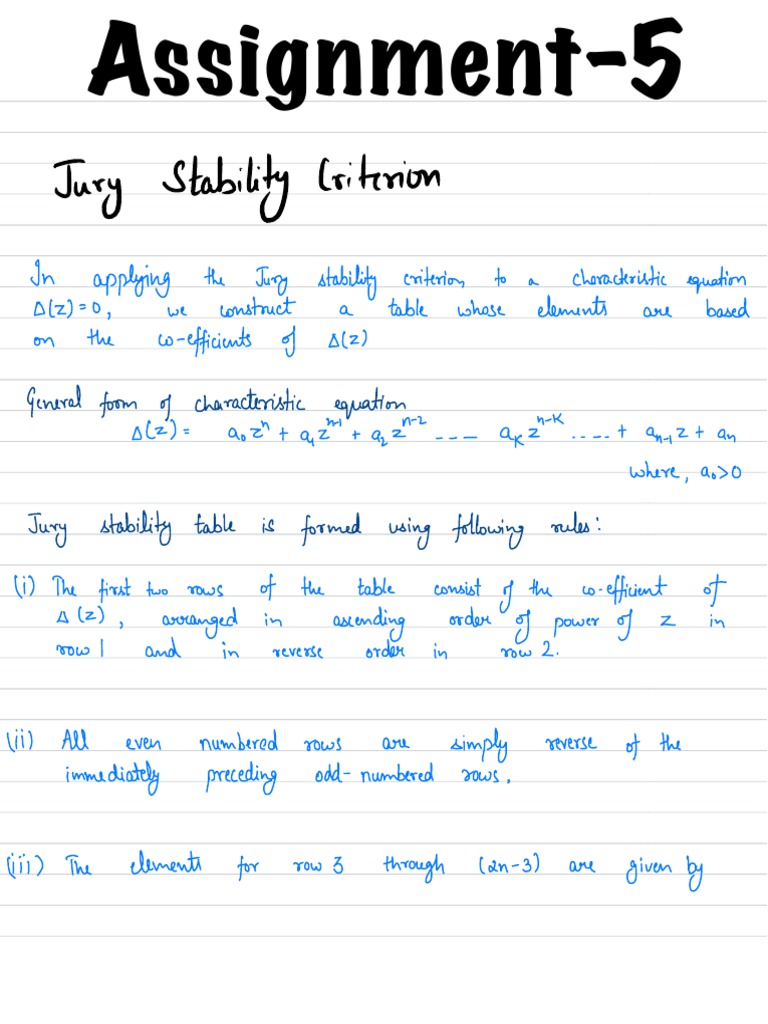 Assignment-5
Jury Stability Criterion
In applying the Jury stability criterion, to a characteristic equation
Δ(z)=0, we construct a table whose elements are based
on the co-efficients of Δ(z)
General form of characteristic equation
Δ(z) = a₀zⁿ + a₁zⁿ⁻¹ + a₂zⁿ⁻² --- aₖzⁿ⁻ᴷ ....+ aₙ₋₁z + aₙ
where, a₀>0
Jury stability table is formed using following rules:
(i) The first two rows of the table consist of the co-efficient of
Δ(z), arranged in ascending order of power of z in
row 1 and in reverse order in row 2.
(ii) All even numbered rows are simply reverse of the
immediately preceding odd-numbered rows.
(iii) The elements for row 3 through (2n-3) are given by